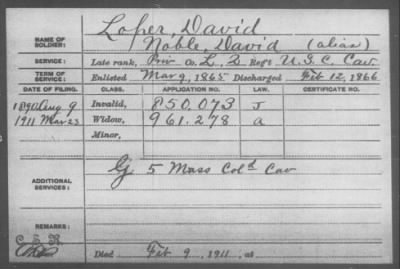 Loper, David
NAME OF SOLDIER: Noble, David (alias)
SERVICE: Late rank, Priv Co. L, 2 Reg't U.S.C. Cav
TERM OF SERVICE: Enlisted Mar 9, 1865 Discharged Feb 12, 1866
DATE OF FILING. CLASS. APPLICATION NO. LAW. CERTIFICATE NO.
1890 Aug 9 Invalid, 850.073 J
1911 Mar 23 Widow, 961.278 a
Minor,
ADDITIONAL SERVICES: G 5 Mass Col'd Cav
REMARKS:
Died Feb 9, 1911, at